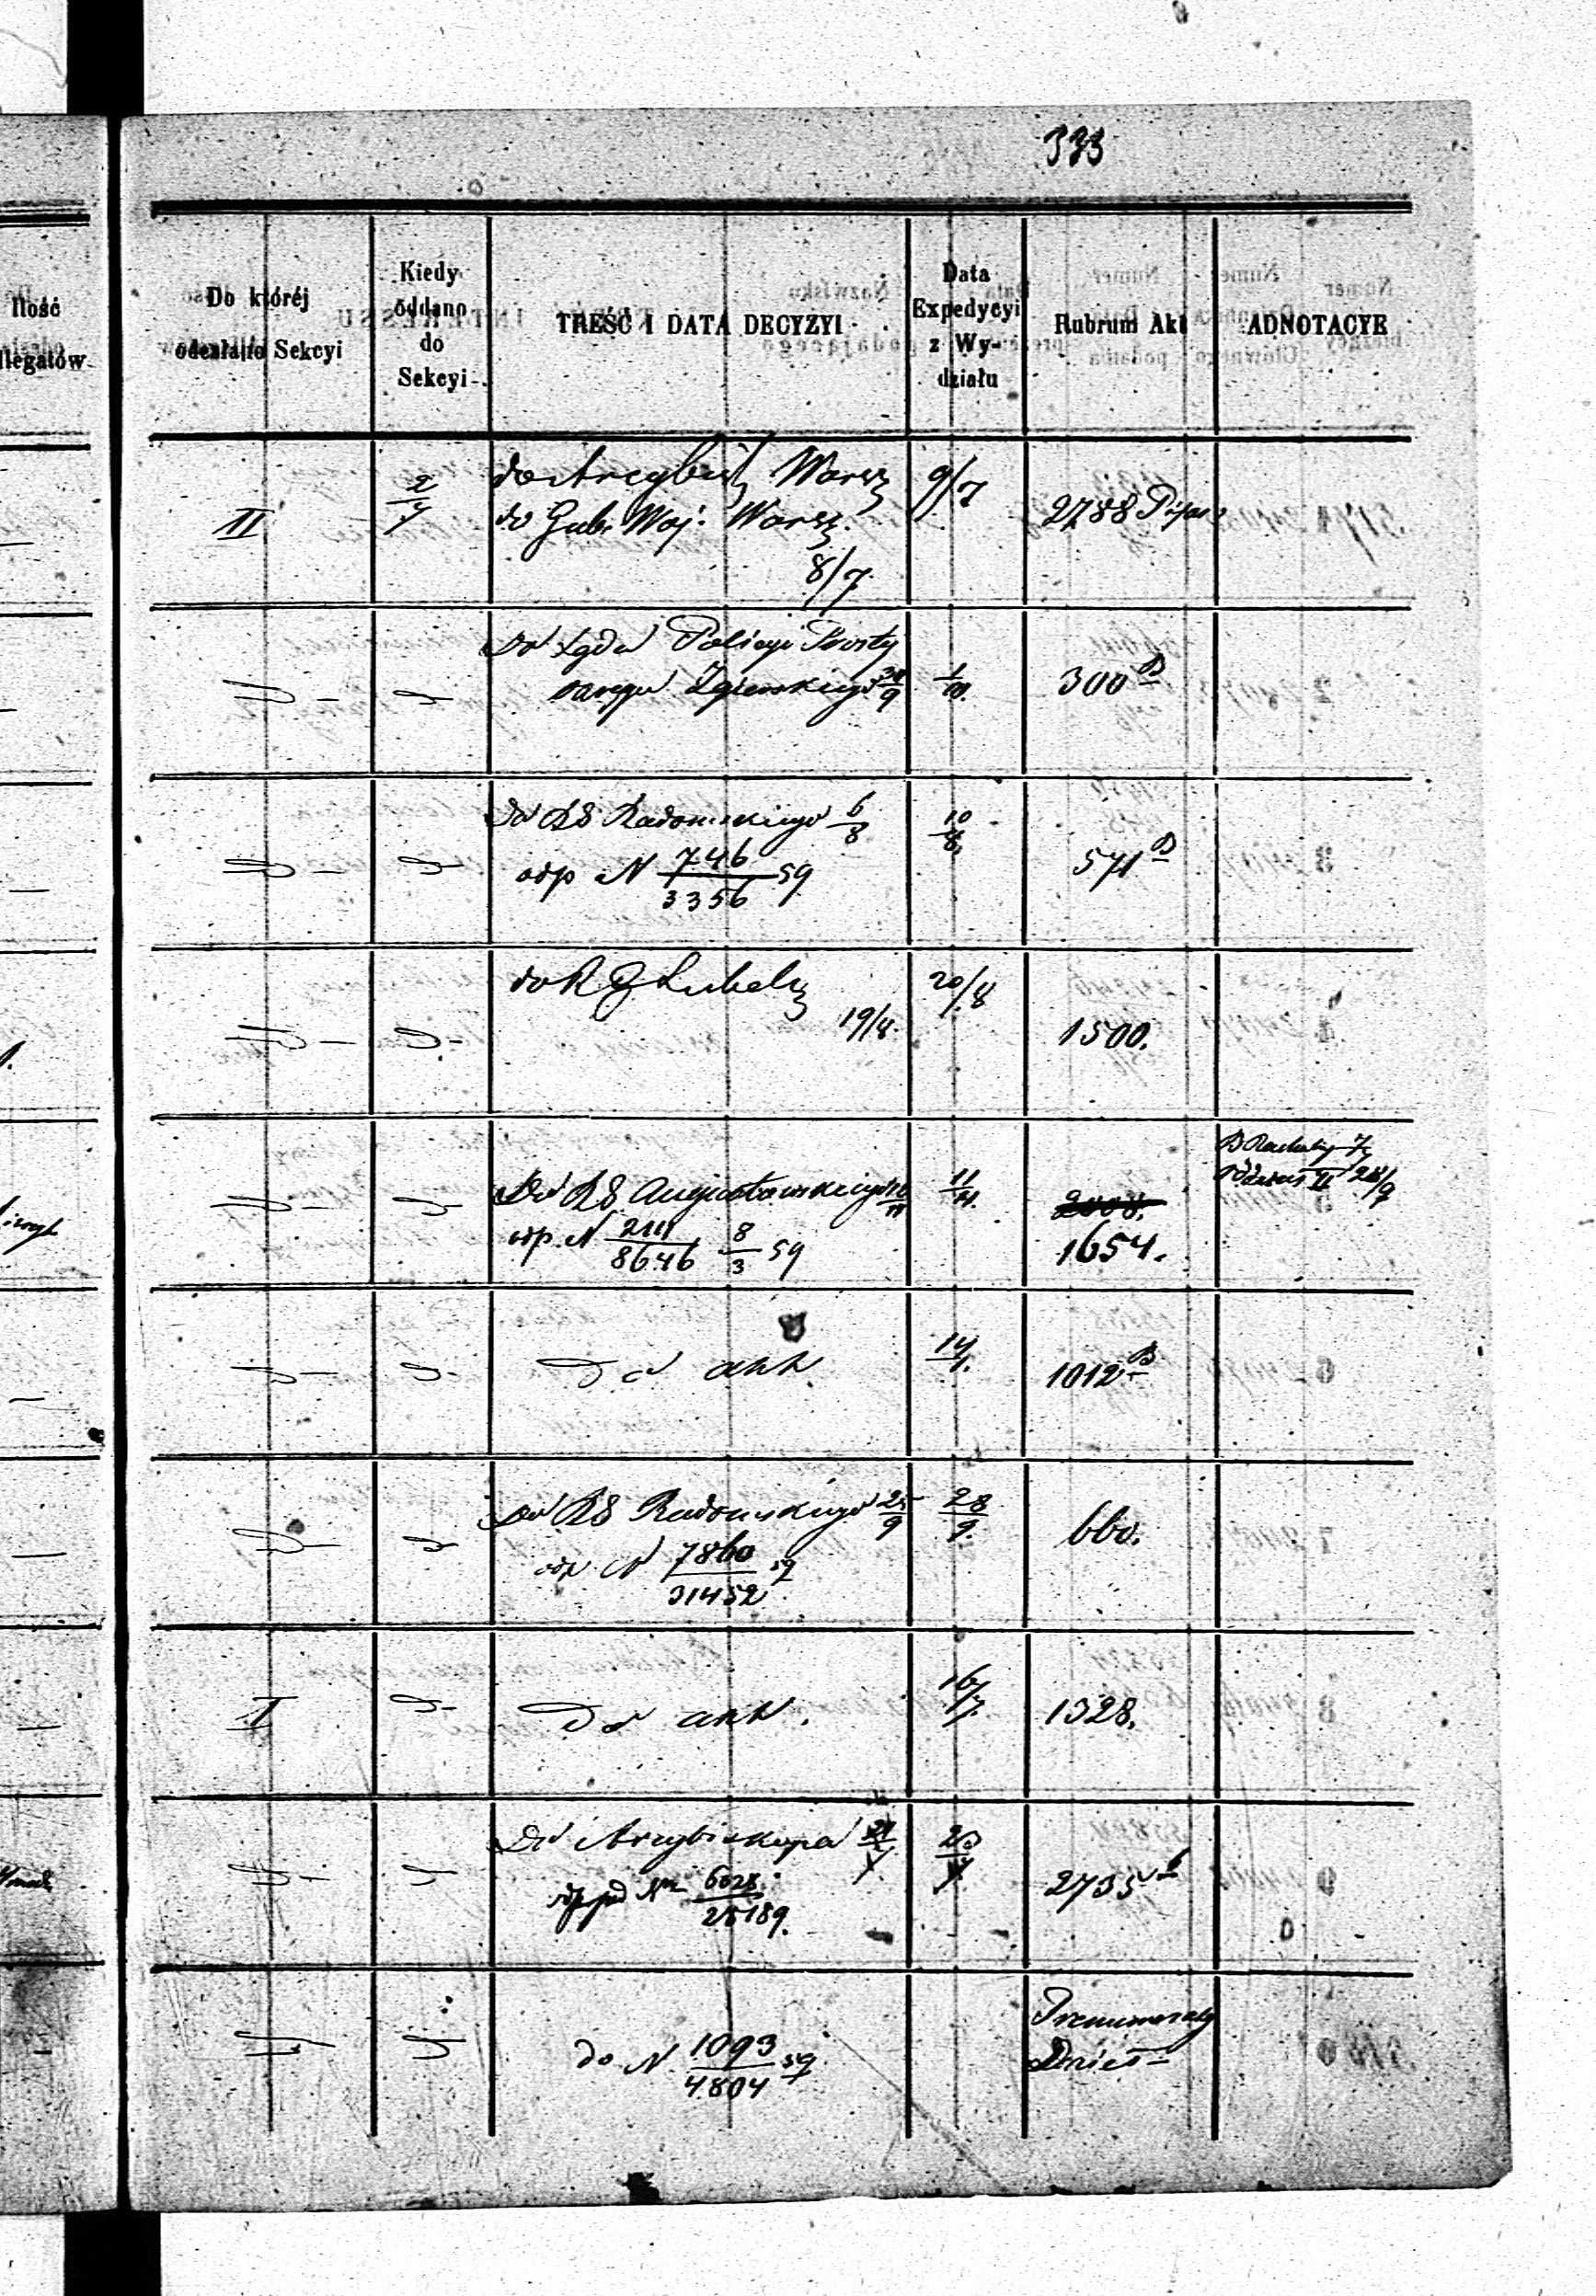 333
Ilość
llegatów
Do któréj
odesłano Sekcyi
Kiedy
oddano
do
Sekcyi
TREŚĆ I DATA DECYZYI
Data
Expedycyi
z Wy-
działu
Rubrum Akt
ADNOTACYE
II
2/7
do Arcybisk Warsz
do Gub. Woj. Warsz.
8/7
9/7
2788
Do Sądu Policyi Prostej
Okręgu Zgierskiego 30/9
1/10.
300 B
Do RG Radomskiego 6/8
odp N 746/3356 59
10/8.
571 B
do R G Lubels
19/8.
20/8
1500.
Do RG Augustowskiego 10/11
odp. N 2111/8646 8/3 59
11/11.
2008.
1654.
28/9
Do akt
14/7.
1012 B
Do RG Radomskiego 25/9
odp. N 7860/31452 59
28/9.
660.
I
Do akt.
16/7.
1328.
Do Arcybiskupa
odp pod Nr 6028/25189.
2735
do N. 1093/4804 59
Prenumeraty